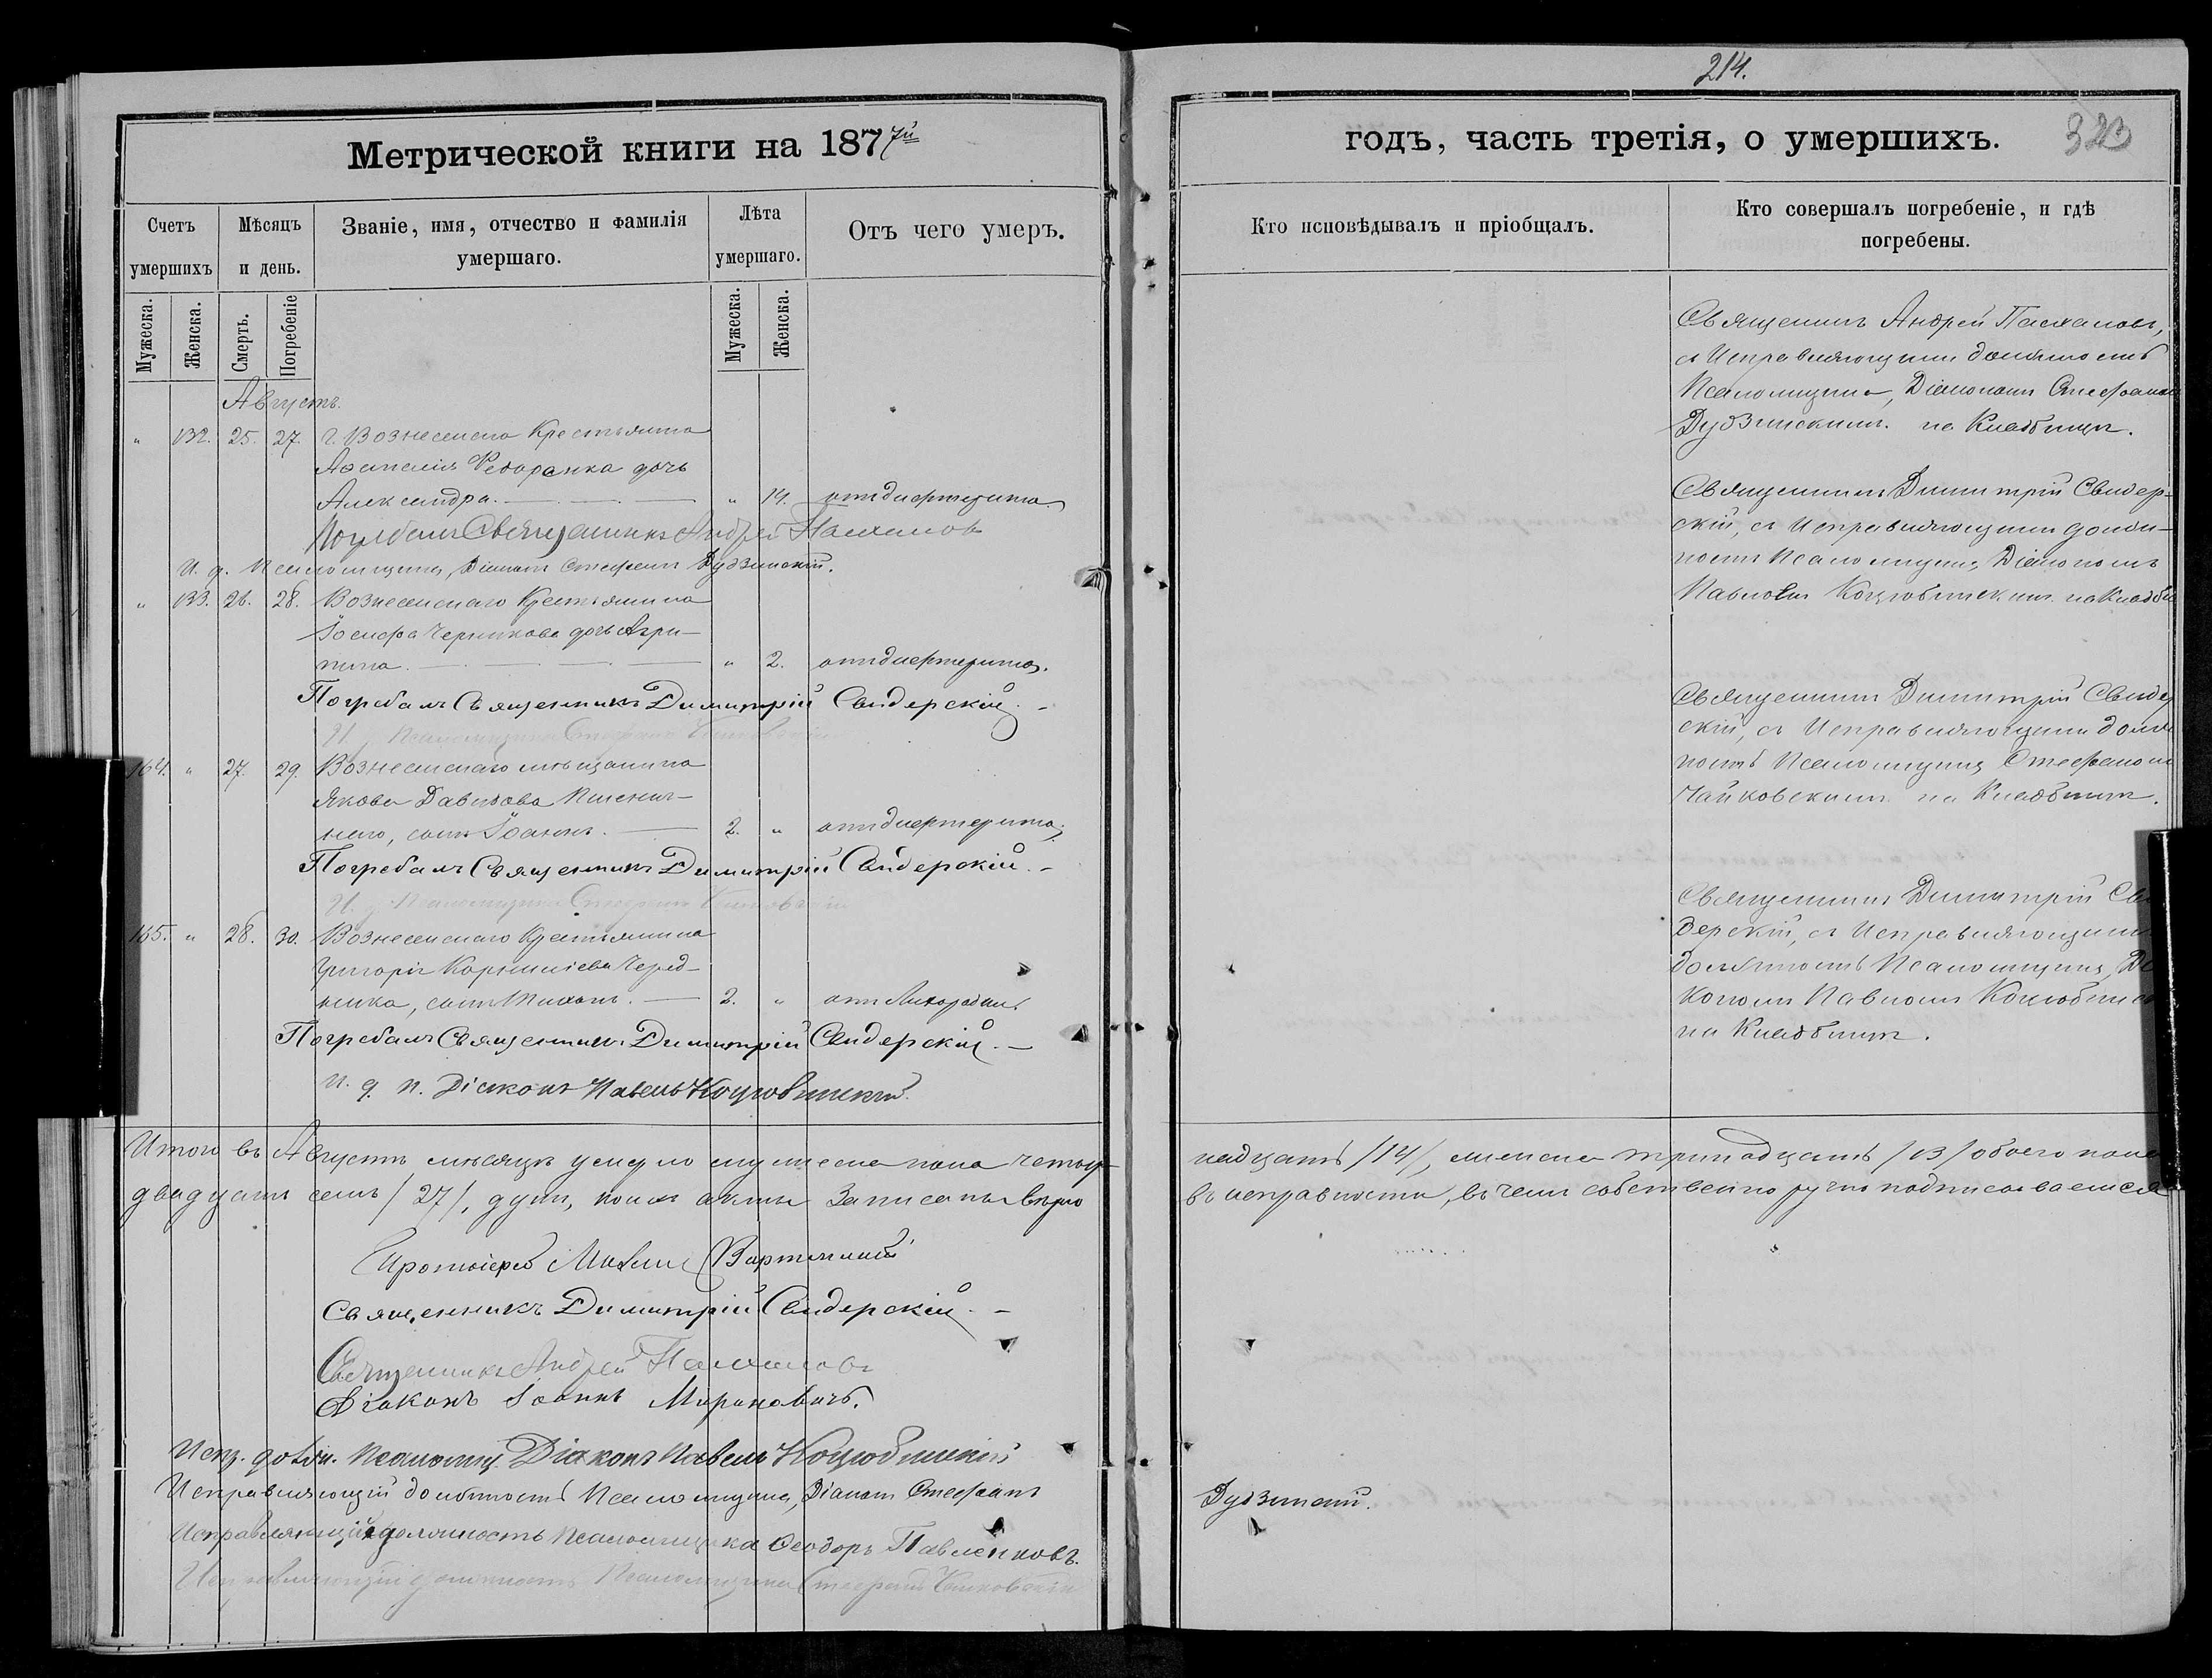 214.
323
Метрической книги на 1877й
годъ, часть третія, о умершихъ.
Счетъ умершихъ
Мѣсяцъ и день.
Званіе, имя, отчество и фамилія умершаго.
Лѣта умершаго.
Отъ чего умеръ.
Кто исповѣдывалъ и пріобщалъ.
Кто совершалъ погребеніе, и гдѣ погребены.
Мужеска.
Женска.
Смерть.
Погребеніе
Мужеска.
Женска.
Августъ.
" 132. 25. 27. г. Вознесенска Крестьянина
Аѳанасія Ѳедоренка дочь
Александра. " 14. отъ диѳтерита.
Погребалъ Священникъ Андрей
И. д. Псаломщика, Діаконъ Стефанъ Дудзинскій.
Священникъ Андрей
съ Исправляющимъ должность
Псаломщика, Діакономъ Стефаномъ
Дудзинскимъ. на Кладбищѣ.
" 133. 26. 28. Вознесенскаго Крестьянина
Іосифа Черникова дочь Агри-
пина. " 2. отъ диѳтерита.
Погребалъ Священникъ Димитрій Свидерскій. -
И. д. Псаломщика Стефанъ
Священникъ Димитрій Свидер-
скій, съ Исправляющимъ долж-
ность Псаломщика Діакономъ
Павломъ Коцюбинскимъ на Кладби
164. " 27. 29. Вознесенскаго мѣщанина
Якова Давидова Пшенич-
наго, сынъ Іоаннъ. 2. " отъ диѳтерита.
Погребалъ Священникъ Димитрій Свидерскій. -
И. д. Псаломщика Стефанъ
Священникъ Димитрій Свидер
скій, съ Исправляющимъ долж
ность Псаломщика Стефаномъ
Чайковскимъ на Кладбищѣ.
165. " 28. 30. Вознесенскаго Крестьянина
Григорія Корниліева Черед-
ника, сынъ 2. " отъ Лихорадки
Погребалъ Священникъ Димитрій Свидерскій. -
и. д. п. Діаконъ Павелъ Коцюбинскій.
Священникъ Димитрій Сви
дерскій, съ Исправляющимъ
должность Псаломщика, Ді
кономъ Павломъ Коцюбинск
на Кладбищѣ.
Итого въ Августѣ мѣсяцѣ умерло мужеска пола четыр-
надцать /14/, женска тринадцать /13/ обоего пола
двадцать семь /27/, душъ, коихъ акты записаны вѣрно
въ исправности, въ чемъ собственно ручно подписываемся
Протоіерей
Священникъ Димитрій Свидерскій. -
Священникъ Андрей
Діаконъ Іоаннъ Мироновичъ.
Испр. долж. Псаломщ. Діаконъ Павелъ Коцюбинскій
Исправляющій должность Псаломщика, Діаконъ Стефанъ
Дудзинскій.
Исправляющій должность Псаломщика Ѳеодоръ Павленковъ.
Исправляющій должность Псаломщика Стефанъ